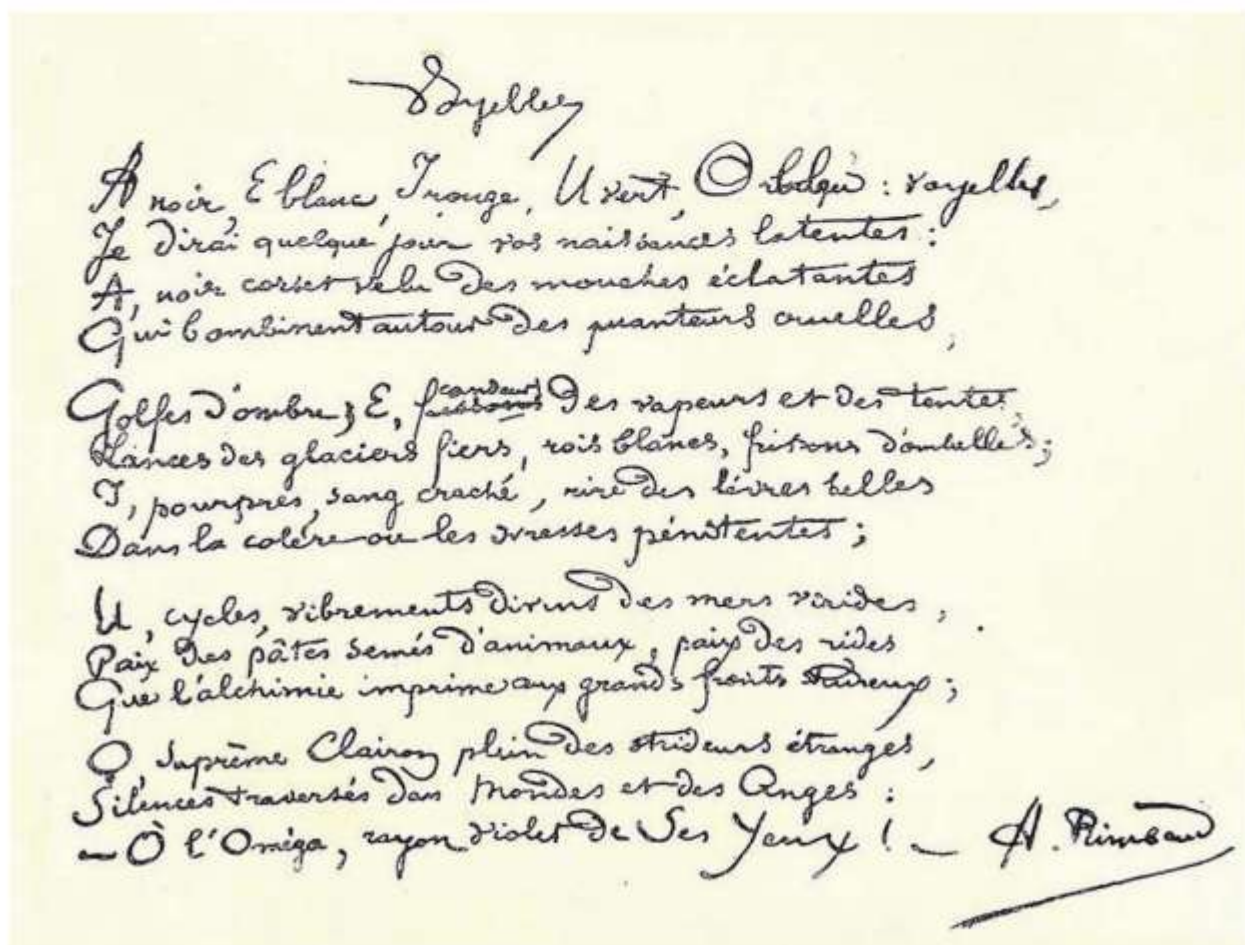 Voyelles
A noir, E blanc, I rouge, U vert, O bleu : voyelles,
Je dirai quelque jour vos naissances latentes :
A, noir corset velu des mouches éclatantes
Qui bombinent autour des puanteurs cruelles,
Golfes d'ombre ; E, frissons candeurs des vapeurs et des tentes,
Lances des glaciers fiers, rois blancs, frissons d'ombelles ;
I, pourpres, sang craché, rire des lèvres belles
Dans la colère ou les ivresses pénitentes ;
U, cycles, vibrements divins des mers virides,
Paix des pâtis semés d'animaux, paix des rides
Que l'alchimie imprime aux grands fronts studieux ;
O, Suprême Clairon plein des strideurs étranges,
Silences traversés des Mondes et des Anges :
— O l'Oméga, rayon violet de Ses Yeux ! —
A. Rimbaud